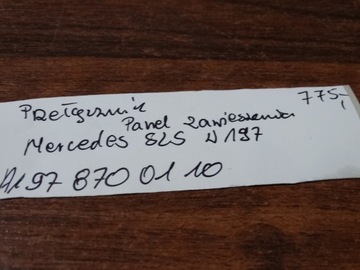 Przełącznik 775,-
Panel zawieszenia
Mercedes SLS W197
A197 870 01 10